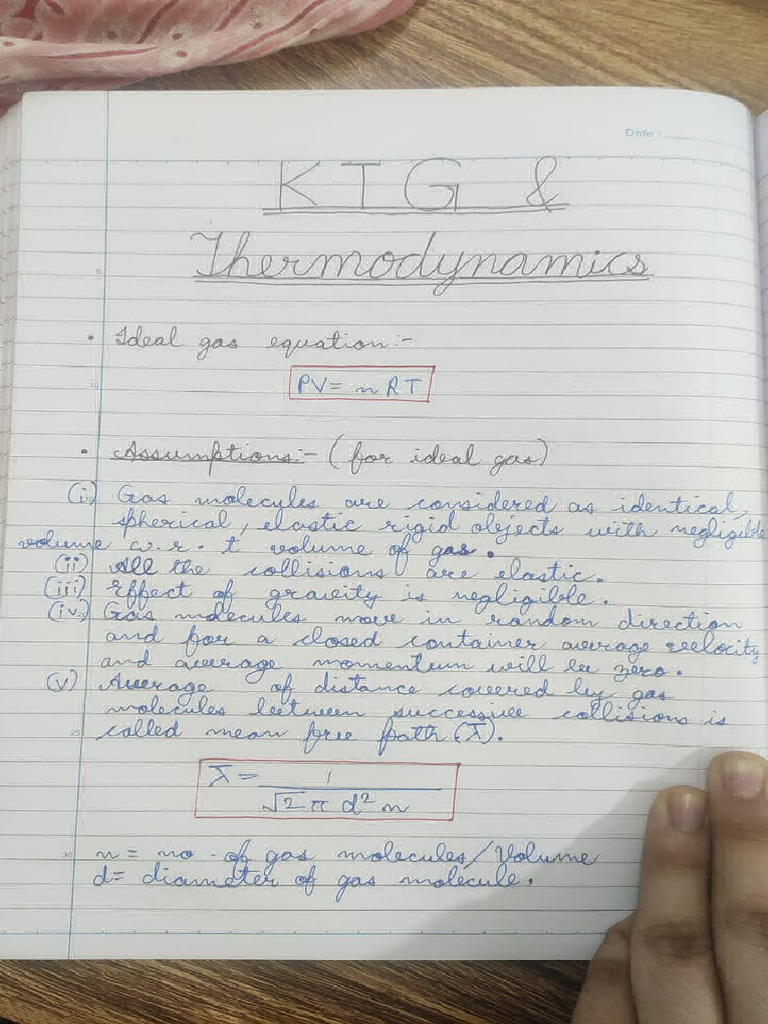 Date :
KTG &
Thermodynamics
• Ideal gas equation :-
PV = nRT
• Assumptions :- (for ideal gas)
(i) Gas molecules are considered as identical,
spherical, elastic rigid objects with negligible
volume w.r.t volume of gas.
(ii) All the collisions are elastic.
(iii) Effect of gravity is negligible.
(iv) Gas molecules move in random direction
and for a closed container average velocity
and average momentum will be zero.
(v) Average of distance covered by gas
molecules between successive collisions is
called mean free path (λ̅).
λ̅ = 1 / √2 π d² n
n = no. of gas molecules/Volume
d = diameter of gas molecule.
5
10
25
30